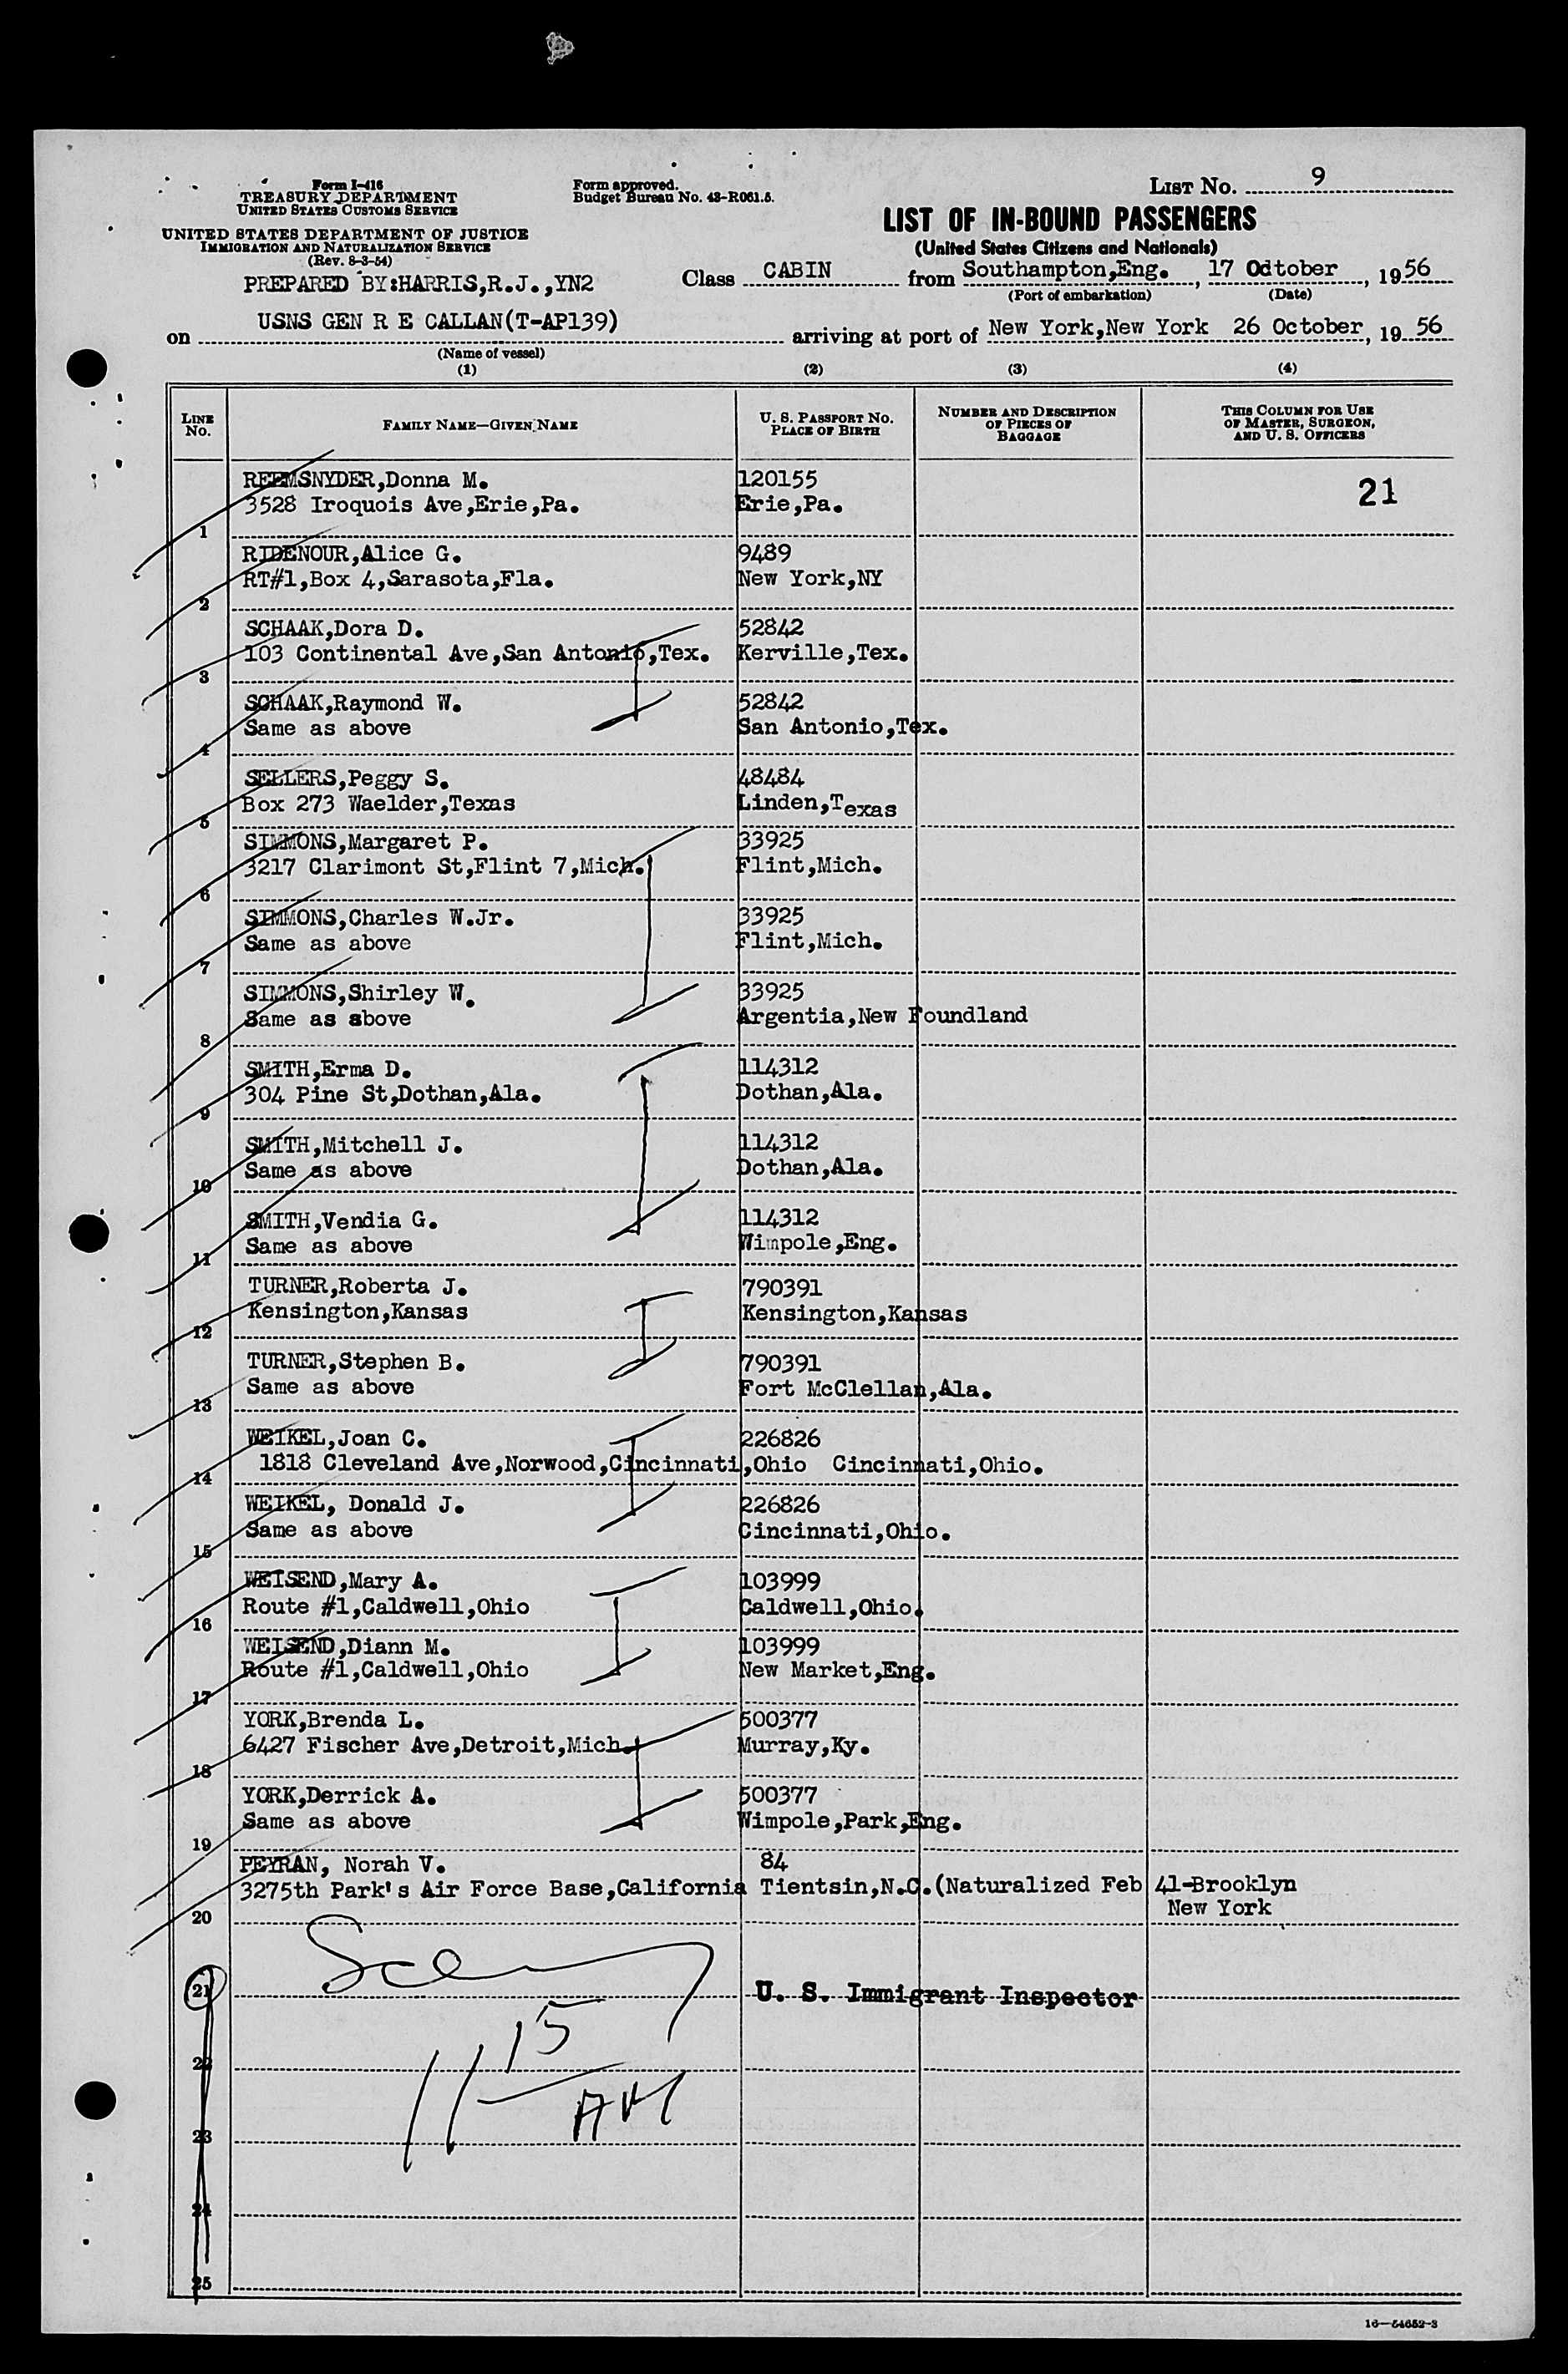 Form I-416
TREASURY DEPARTMENT
UNITED STATES CUSTOMS SERVICE
UNITED STATES DEPARTMENT OF JUSTICE
IMMIGRATION AND NATURALIZATION SERVICE
(Rev. 8-3-54)
PREPARED BY:HARRIS,R.J.,YN2
Form approved.
Budget Bureau No. 43-R061.5.
LIST NO. 9
LIST OF IN-BOUND PASSENGERS
(United States Citizens and Nationals)
Class CABIN from Southampton,Eng. , 17 Odtober , 1956
(Port of embarkation) (Date)
on USNS GEN R E CALLAN(T-AP139) arriving at port of New York,New York 26 October , 19 56
(Name of vessel)
(1) (2) (3) (4)
LINE NO. FAMILY NAME—GIVEN NAME U. S. PASSPORT NO. PLACE OF BIRTH NUMBER AND DESCRIPTION OF PIECES OF BAGGAGE THIS COLUMN FOR USE OF MASTER, SURGEON, AND U. S. OFFICERS
REEMSNYDER,Donna M. 120155 21
3528 Iroquois Ave,Erie,Pa. Erie,Pa.
1
RIDENOUR,Alice G. 9489
RT#1,Box 4,Sarasota,Fla. New York,NY
2
SCHAAK,Dora D. 52842
103 Continental Ave,San Antonio,Tex. Kerville,Tex.
3
SCHAAK,Raymond W. 52842
Same as above San Antonio,Tex.
4
SELLERS,Peggy S. 48484
Box 273 Waelder,Texas Linden,Texas
5
SIMMONS,Margaret P. 33925
3217 Clarimont St,Flint 7,Mich. Flint,Mich.
6
SIMMONS,Charles W.Jr. 33925
Same as above Flint,Mich.
7
SIMMONS,Shirley W. 33925
Same as above Argentia,New Foundland
8
SMITH,Erma D. 114312
304 Pine St,Dothan,Ala. Dothan,Ala.
9
SMITH,Mitchell J. 114312
Same as above Dothan,Ala.
10
SMITH,Vendia G. 114312
Same as above Wimpole,Eng.
11
TURNER,Roberta J. 790391
Kensington,Kansas Kensington,Kansas
12
TURNER,Stephen B. 790391
Same as above Fort McClellan,Ala.
13
WEIKEL,Joan C. 226826
1818 Cleveland Ave,Norwood,Cincinnati,Ohio Cincinnati,Ohio.
14
WEIKEL, Donald J. 226826
Same as above Cincinnati,Ohio.
15
WEISEND,Mary A. 103999
Route #1,Caldwell,Ohio Caldwell,Ohio.
16
WEISEND,Diann M. 103999
Route #1,Caldwell,Ohio New Market,Eng.
17
YORK,Brenda L. 500377
6427 Fischer Ave,Detroit,Mich. Murray,Ky.
18
YORK,Derrick A. 500377
Same as above Wimpole,Park,Eng.
19
PEYRAN, Norah V. 84
3275th Park's Air Force Base,California Tientsin,N.C.(Naturalized Feb 41-Brooklyn
New York
20
21 U. S. Immigrant Inspector
11 15 AM
22
23
24
25
16—54652-3